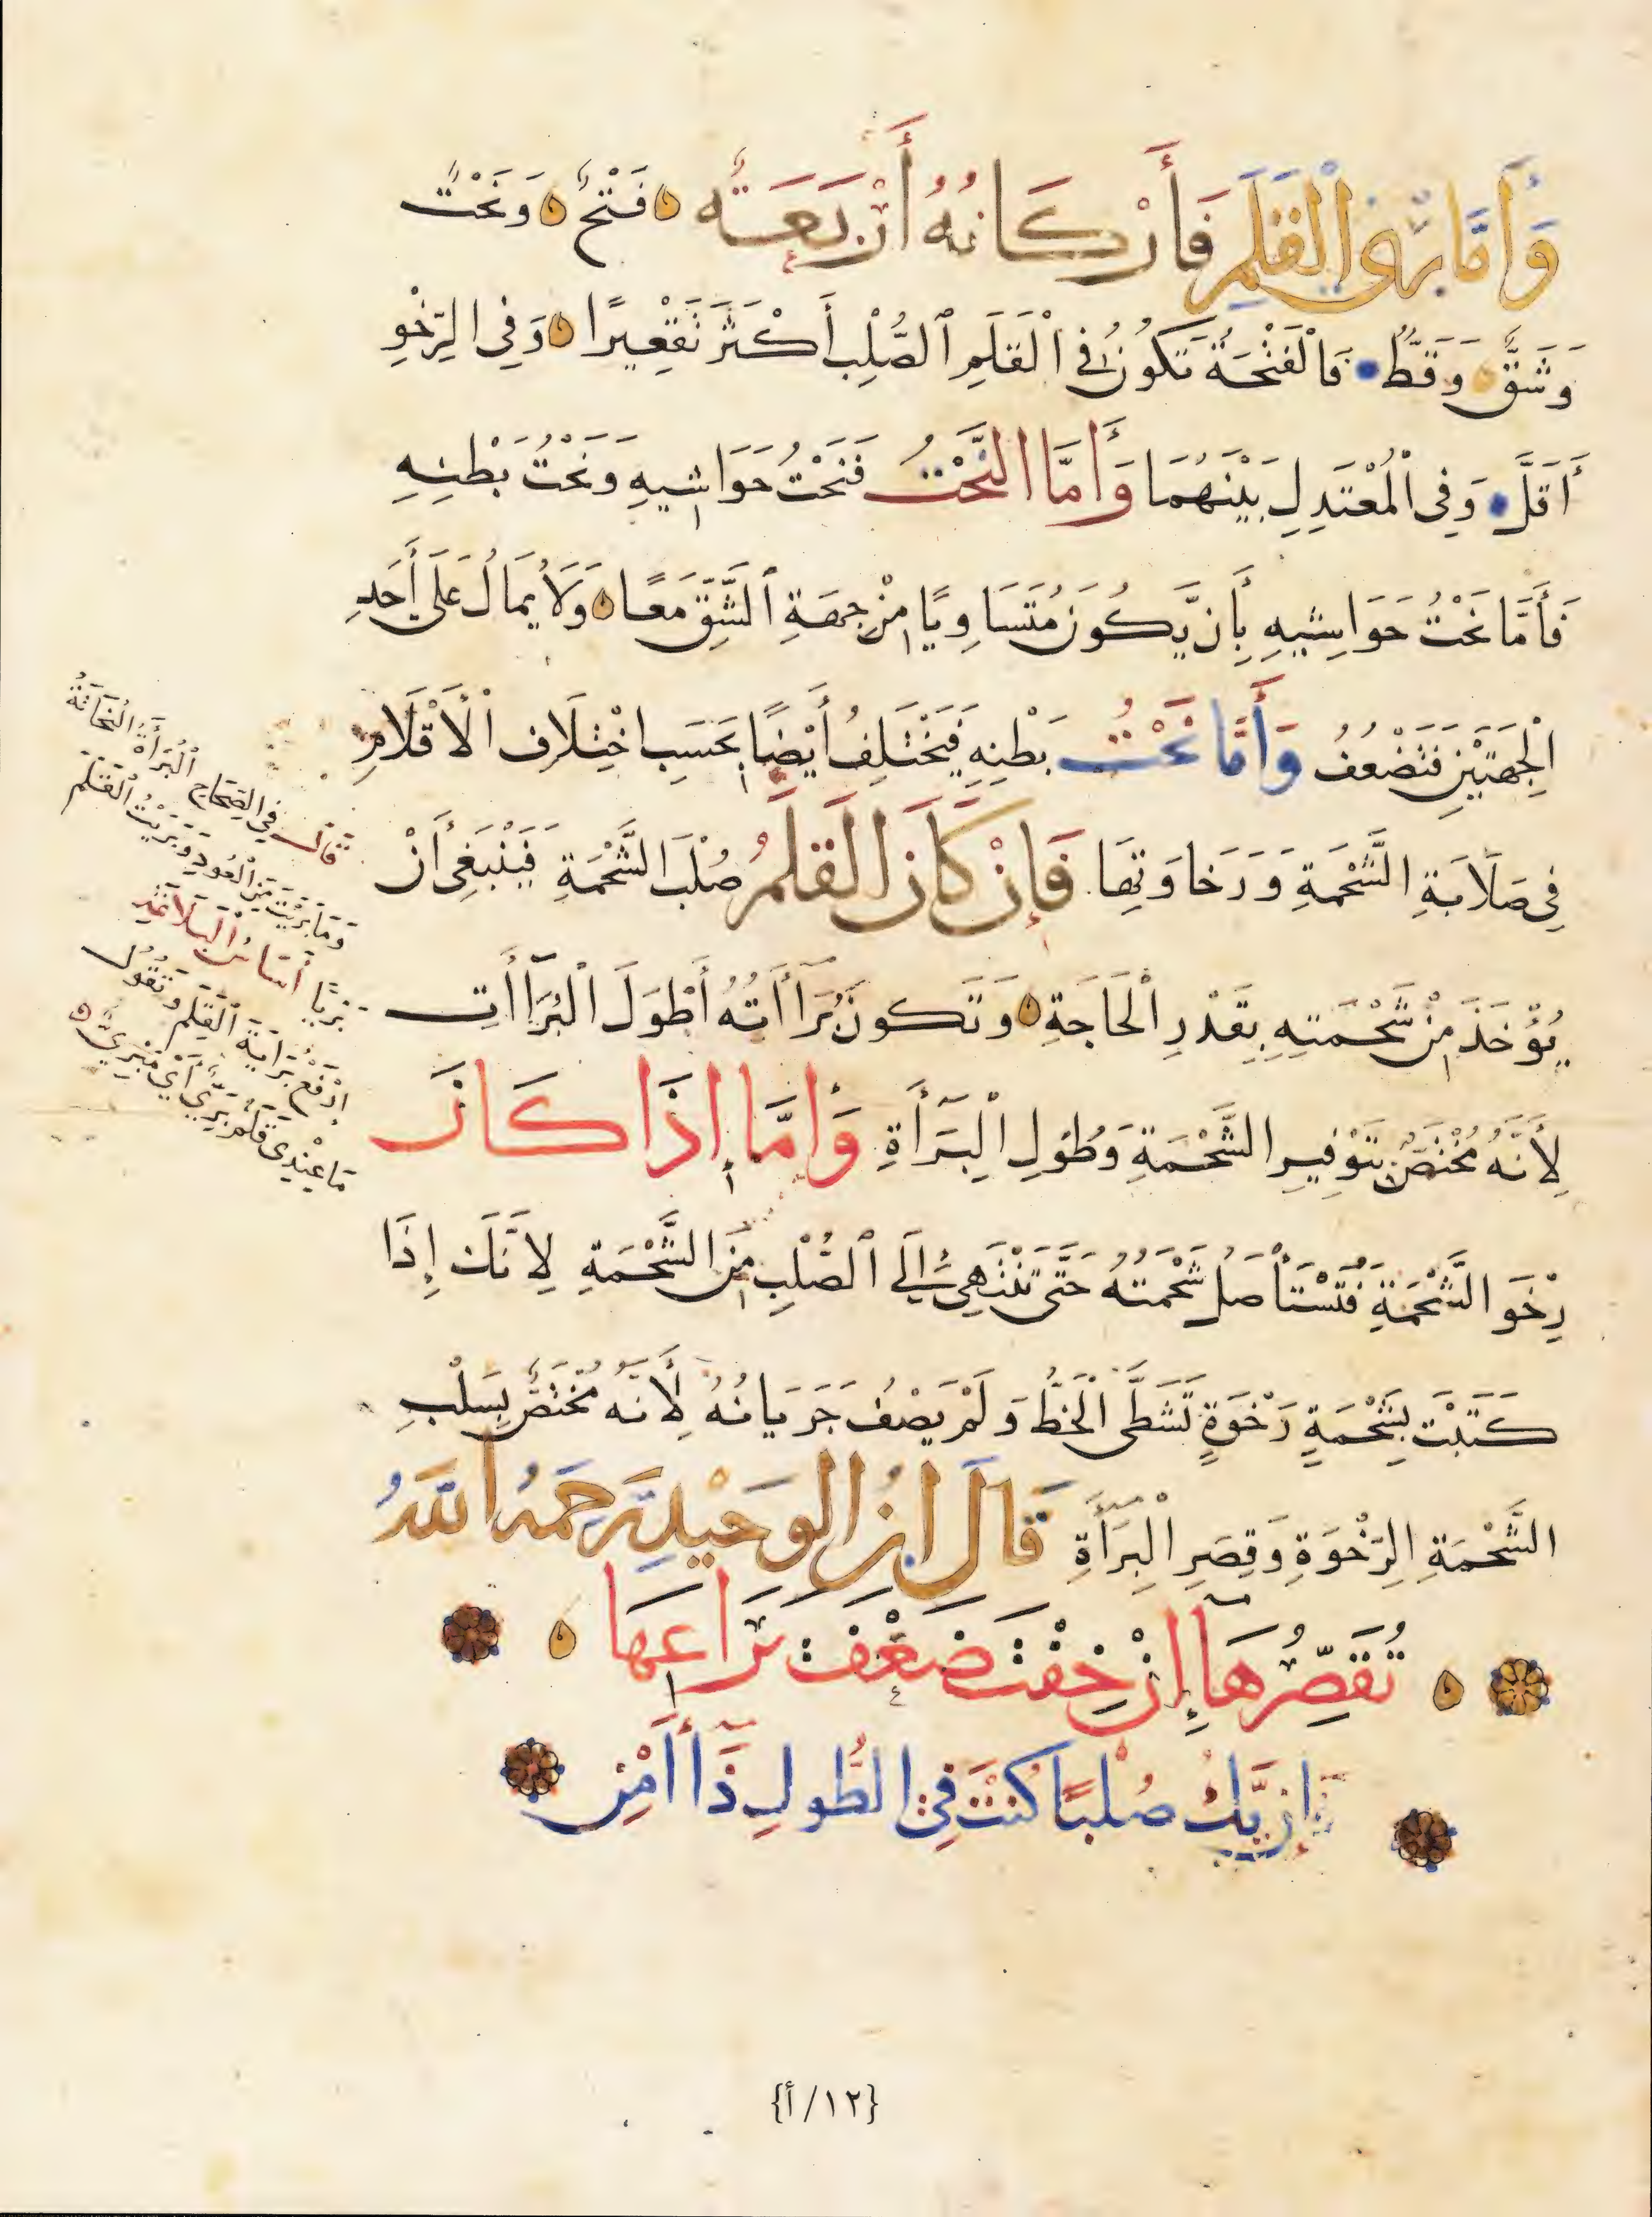 وَأَمَّا بَرْيُ الْقَلَمِ فَأَرْكَانُهُ أَرْبَعَةٌ فَتْحٌ وَنَحْتٌ
وَشَقٌّ وَقَطٌّ فَالْفَتْحَةُ تَكُونُ فِي الْقَلَمِ الصُّلْبِ أَكْثَرَ تَقْعِيرًا وَفِي الرِّخْوِ
أَقَلَّ وَفِي الْمُعْتَدِلِ بَيْنَهُمَا وَأَمَّا النَّحْتُ فَنَحْتُ حَوَاشِيهِ وَنَحْتُ بَطْنِهِ
فَأَمَّا نَحْتُ حَوَاشِيهِ بِأَن يَّكُونَ مُتَسَاوِيًا مِنْ جِهَةِ الشَّقِّ مَعًا وَلَا يُمَالُ عَلَى أَحَدِ
الْجِهَتَيْنِ فَتَضْعُفُ وَأَمَّا نَحْتُ بَطْنِهِ فَيَخْتَلِفُ أَيْضًا بِحَسَبِ اخْتِلَافِ الْأَقْلَامِ
فِي صَلَابَةِ الشَّحْمَةِ وَرَخَاوَتِهَا فَإِنْ كَانَ الْقَلَمُ صُلْبَ الشَّحْمَةِ فَيَنْبَغِي أَنْ
يُؤْخَذَ مِنْ شَحْمَتِهِ بِقَدْرِ الْحَاجَةِ وَتَكُونَ بُرَاأَتُهُ أَطْوَلَ الْبُرَاأَاتِ
لِأَنَّهُ مُخْتَصٌّ بِتَوْفِيرِ الشَّحْمَةِ وَطُولِ الْبِرَأَةِ وَإِمَّا إِذَا كَانَ
رِخْوَ الشَّحْمَةِ فَتُسْتَأْصَلُ شَحْمَتُهُ حَتَّى تَنْتَهِيَ إِلَى الصُّلْبِ مِنَ الشَّحْمَةِ لِأَنَّكَ إِذَا
كَتَبْتَ بِشَحْمَةٍ رَخْوَةٍ تَشَظَّى الْخَطُّ وَلَمْ يَصْفُ جَرَيَانُهُ لِأَنَّهُ مُخْتَصٌّ بِسَلْبِ
الشَّحْمَةِ الرِّخْوَةِ وَقِصَرِ الْبِرَأَةِ قَالَ ابْنُ الْوَحِيدِ رَحِمَهُ اللَّهُ
تُقَصِّرُهَا إِنْ خِفْتَ ضَعْفَ يَرَاعِهَا
وَإِن يَّكُ صُلْبًا كُنْتَ فِي الطُّولِ ذَا أَمْنِ
قَالَ فِي الصِّحَاحِ الْبُرَأَةُ النُّحَاتَةُ
وَمَا بَرَيْتَ مِنَ الْعُودِ وَبَرَيْتُ الْقَلَمَ
بَرْيًا
ارْفَعْ بُرَايَةَ الْقَلَمِ وَتَقُولُ
مَا عِنْدِي قَلَمٌ بَرِيٌّ أَيْ مَبْرِيٌّ
{١٢/أ}